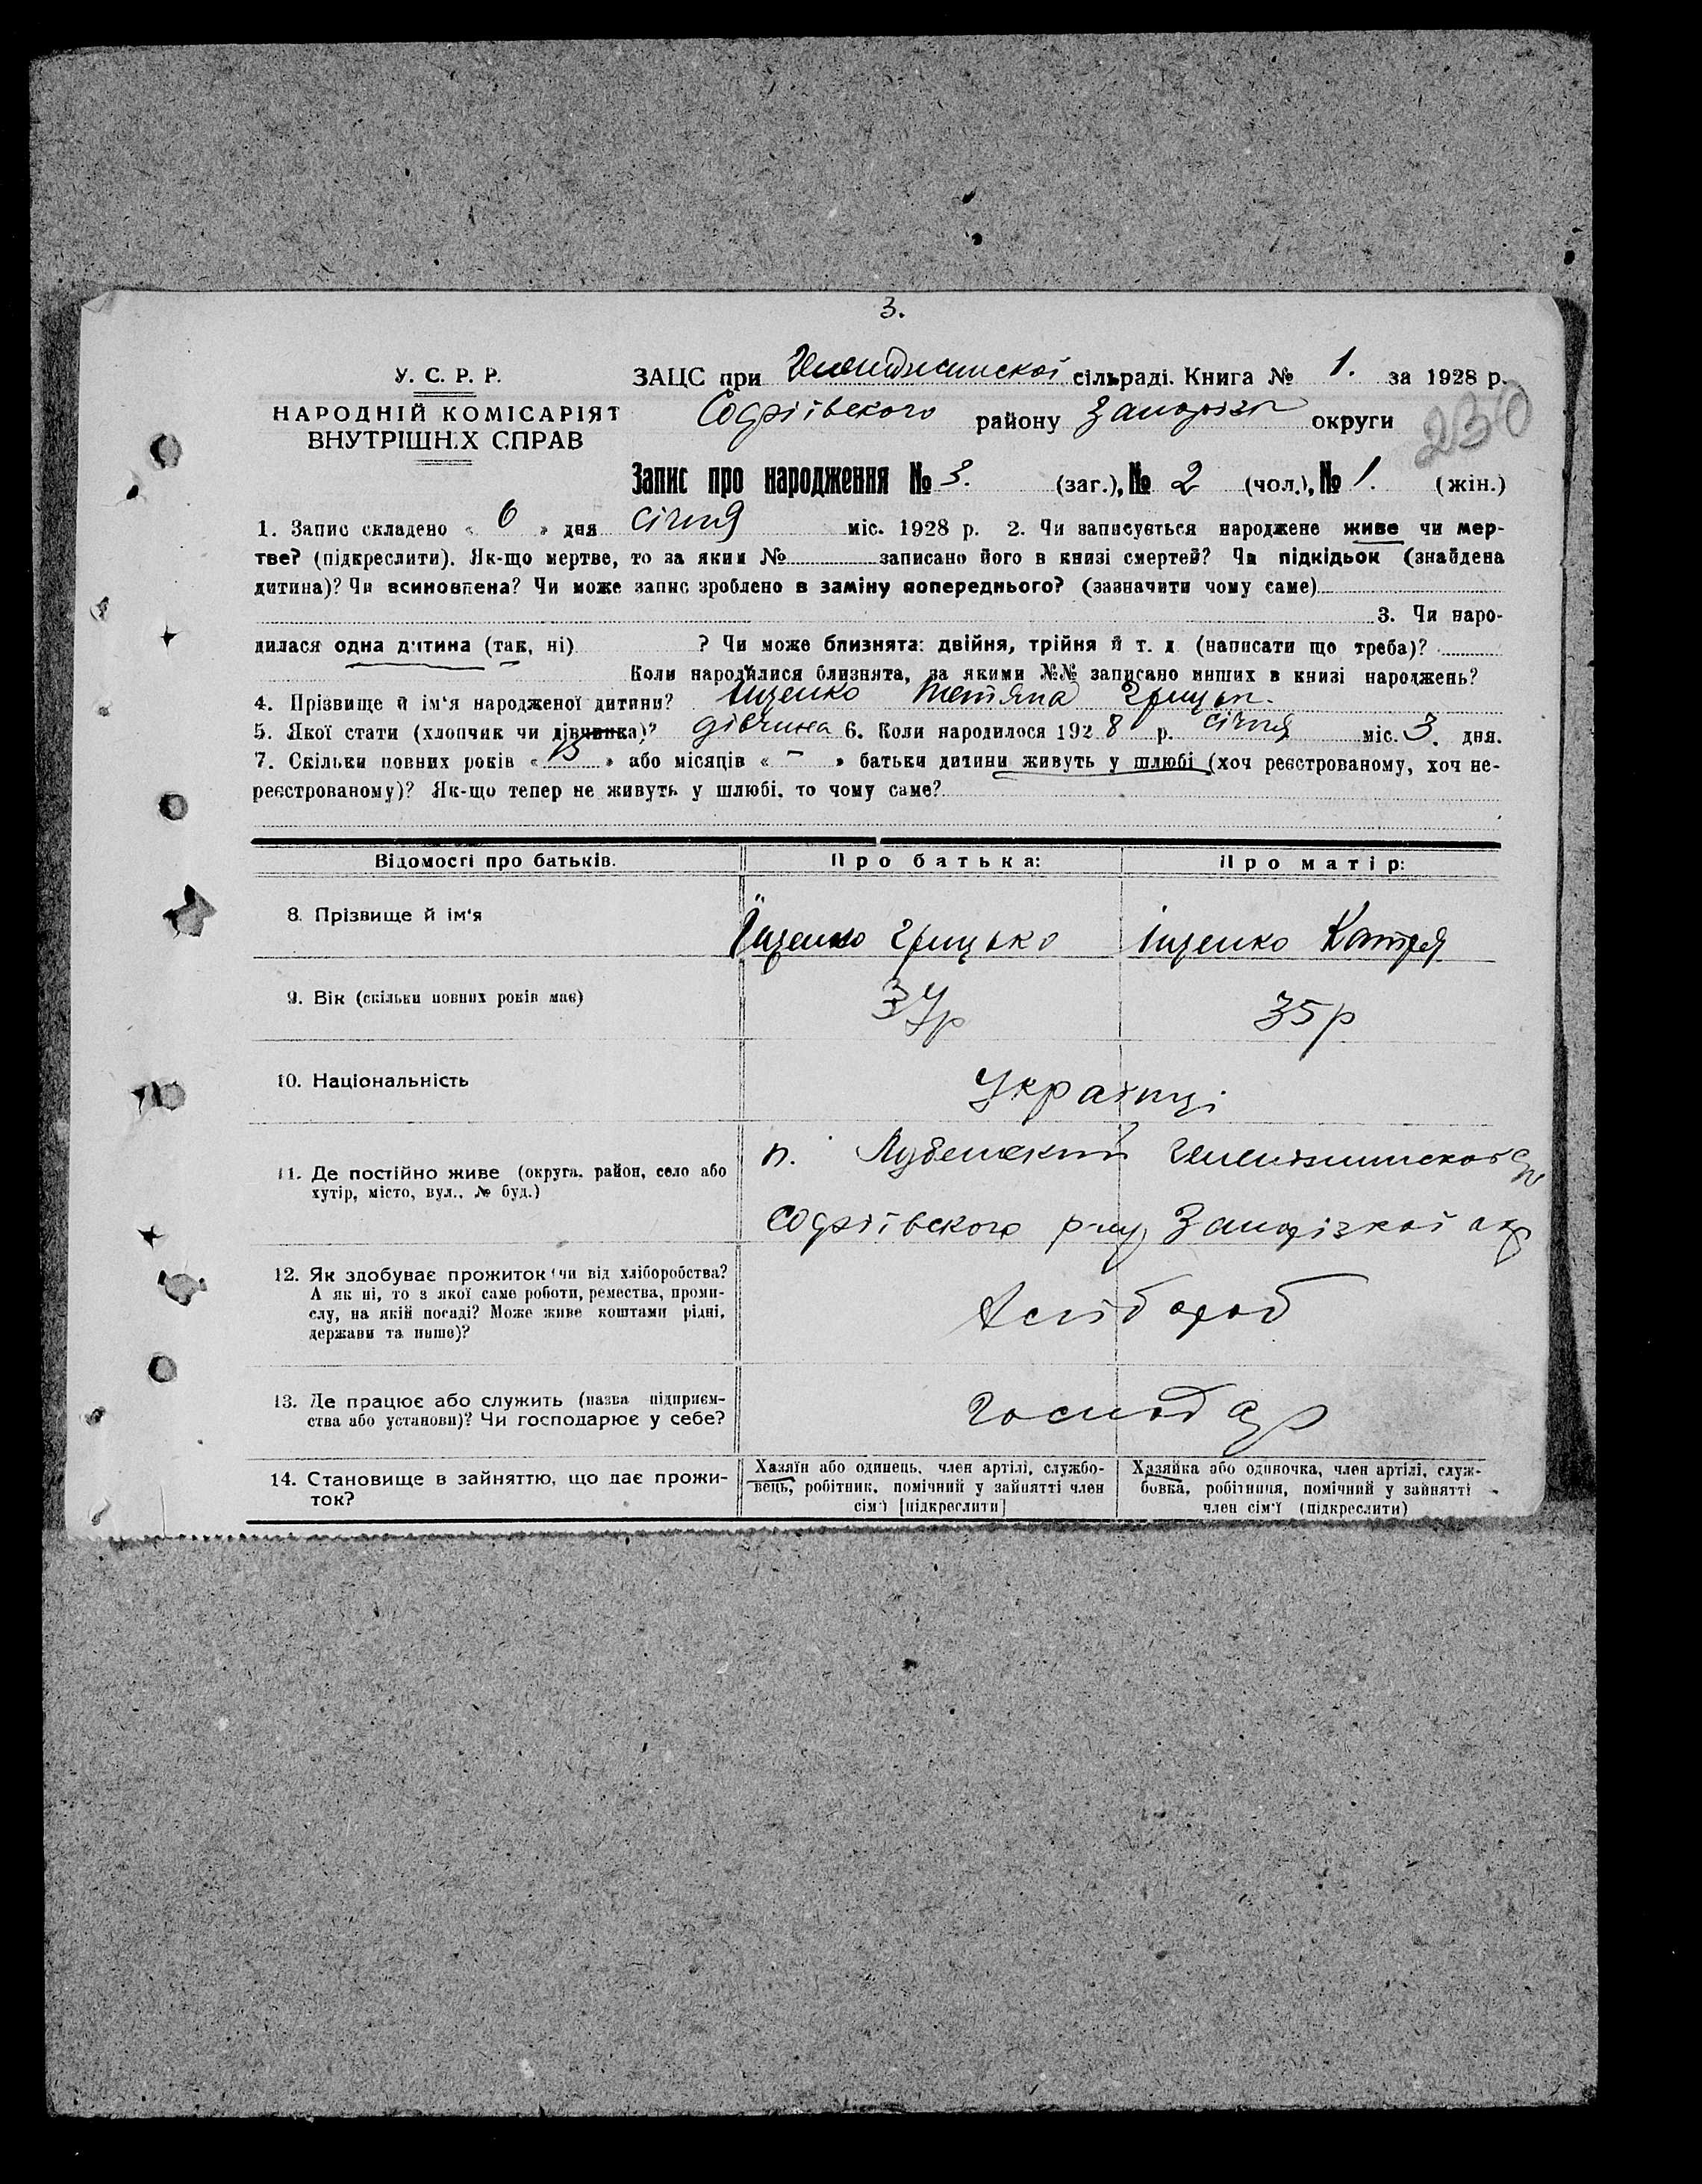 3.
У. С. Р. Р.
НАРОДНІЙ КОМІСАРІЯТ
ВНУТРІШНІХ СПРАВ
ЗАЦС при сільраді. Книга № 1. за 1928 р.
Софіївского району Запоріз округи
230
Запис про народження № 3. (заг.), № 2 (чол.), № 1. (жін.)
1. Запис складено « 6 » дня січня міс. 1928 р. 2. Чи записується народжене живе чи мер-
тве? (підкреслити). Як-що мертве, то за яким № записано його в книзі смертей? Чи підкідьок (знайдена
дитина)? Чи всиновлена? Чи може запис зроблено в заміну попереднього? (зазначити чому саме)
3. Чи наро-
дилася одна дитина (так, ні) ? Чи може близнята: двійня, трійня й т. д. (написати що треба)?
Коли народилися близнята, за якими №№ записано инших в книзі народжень?
4. Прізвище й ім'я народженої дитини? Іщенко Тетяна Грицьк.
5. Якої стати (хлопчик чи дівчинка)? дівчина 6. Коли народилося 1928 р. січня міс. 3. дня.
7. Скільки повних років « 13 » або місяців « – » батьки дитини живуть у шлюбі (хоч реєстрованому, хоч не-
реєстрованому)? Як-що тепер не живуть у шлюбі, то чому саме?
Відомості про батьків. Про батька: Про матір:
8. Прізвище й ім'я Іщенко Грицько Іщенко Катря
9. Вік (скільки повних років має) 37р 35р
10. Національність Українці
11. Де постійно живе (округа, район, село або
хутір, місто, вул., № буд.)
п.
Софіївского р-ну Запорізкої окр
12. Як здобуває прожиток (чи від хліборобства?
А як ні, то з якої саме роботи, ремества, проми-
слу, на якій посаді? Може живе коштами рідні,
держави та инше)?
Хлібороб
13. Де працює або служить (назва підприєм-
ства або установи)? Чи господарює у себе?
Господар
14. Становище в зайняттю, що дає прожи-
ток?
Хазяїн або одинець, член артілі, службо-
вець, робітник, помічний у зайнятті член
сім'ї [підкреслити]
Хазяйка або одиночка, член артілі, служ-
бовка, робітниця, помічний у зайнятті
член сім'ї (підкреслити)